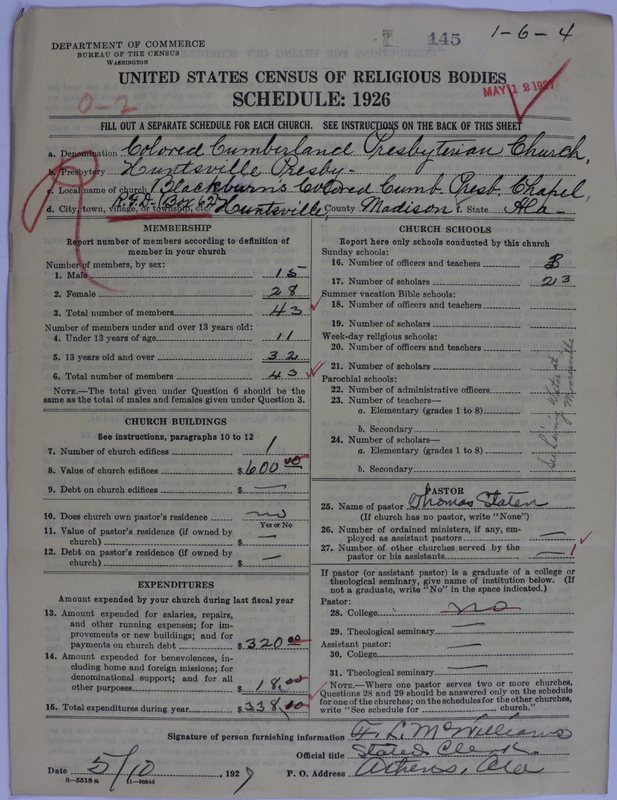 1-6-4
145
DEPARTMENT OF COMMERCE
BUREAU OF THE CENSUS
WASHINGTON
UNITED STATES CENSUS OF RELIGIOUS BODIES
SCHEDULE: 1926
MAY 12 1927
0-2
R
FILL OUT A SEPARATE SCHEDULE FOR EACH CHURCH. SEE INSTRUCTIONS ON THE BACK OF THIS SHEET
a. Denomination Colored Cumberland Presbyterian Church,
b. Presbytery Huntsville Presby-
c. Local name of church Blackburn's Colored Cumb. Presb. Chapel,
d. City, town, village, or township, etc. R.F.D.-(Box 62) Huntsville County Madison f. State Ala-
MEMBERSHIP
Report number of members according to definition of
member in your church
Number of members, by sex:
1. Male 15
2. Female 28
3. Total number of members 43
Number of members under and over 13 years old:
4. Under 13 years of age 11
5. 13 years old and over 32
6. Total number of members 43
NOTE.—The total given under Question 6 should be the
same as the total of males and females given under Question 3.
CHURCH BUILDINGS
See instructions, paragraphs 10 to 12
7. Number of church edifices 1
8. Value of church edifices $600.00
9. Debt on church edifices $ —
10. Does church own pastor's residence no
Yes or No
11. Value of pastor's residence (if owned by
church) $ —
12. Debt on pastor's residence (if owned by
church) $ —
EXPENDITURES
Amount expended by your church during last fiscal year
13. Amount expended for salaries, repairs,
and other running expenses; for im-
provements or new buildings; and for
payments on church debt $320.00
14. Amount expended for benevolences, in-
cluding home and foreign missions; for
denominational support; and for all
other purposes $18.00
15. Total expenditures during year $338.00
CHURCH SCHOOLS
Report here only schools conducted by this church
Sunday schools:
16. Number of officers and teachers 3
17. Number of scholars 23
Summer vacation Bible schools:
18. Number of officers and teachers
19. Number of scholars
Week-day religious schools:
20. Number of officers and teachers
21. Number of scholars
Parochial schools:
22. Number of administrative officers
23. Number of teachers—
a. Elementary (grades 1 to 8)
b. Secondary
24. Number of scholars—
a. Elementary (grades 1 to 8)
b. Secondary
PASTOR
25. Name of pastor Thomas Staten
(If church has no pastor, write "None")
26. Number of ordained ministers, if any, em-
ployed as assistant pastors —
27. Number of other churches served by the
pastor or his assistants — 1
If pastor (or assistant pastor) is a graduate of a college or
theological seminary, give name of institution below. (If
not a graduate, write "No" in the space indicated.)
Pastor:
28. College no
29. Theological seminary —
Assistant pastor:
30. College —
31. Theological seminary —
NOTE.—Where one pastor serves two or more churches,
Questions 28 and 29 should be answered only on the schedule
for one of the churches; on the schedules for the other churches,
write "See schedule for church."
Signature of person furnishing information F. L. McWilliams
Official title Stated Clerk
Date 5/10, 1927 P. O. Address Athens, Ala
8-5518a 11-9054d